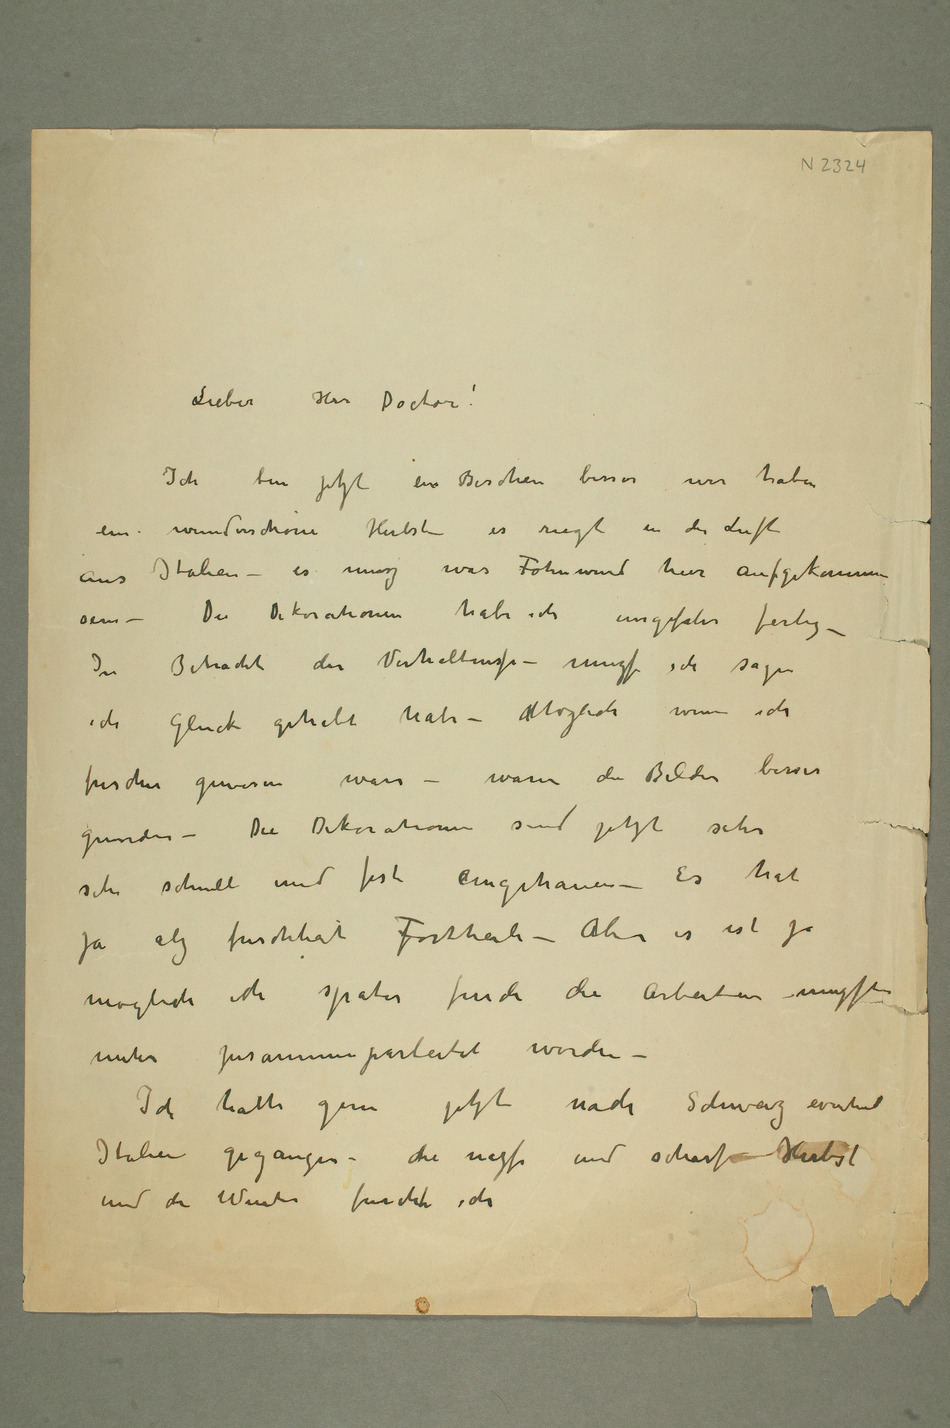 N 2324
Lieber Herr Doctor!
Ich bin jetzt ein Bischen besser wir haben
ein wunderschöne Herbst es riegt in der Luft
aus Italien – es musz was Föhnwind hier aufgekommen
sein – Die Dekorationen habe ich ungefähr fertig –
In Betracht der Verhältnisse – muszs ich sagen
ich Glück gehabt habe – Möglich wenn ich
frischer gewesen wäre – wären die Bilder besser
geworden – Die Dekorationen sind jetzt sehr
sehr schnell und fest eingehauen – Es hat
ja alz frischheit Fortheile – Aber es ist ja
möglich ich später finde die Arbeiten muszften
mehr zusammengearbeitet worden –
Ich hätte gern jetzt nach Schweiz eventuel
Italien gegangen – die naszse und scharfe Herbst
und der Winter fürchte ich